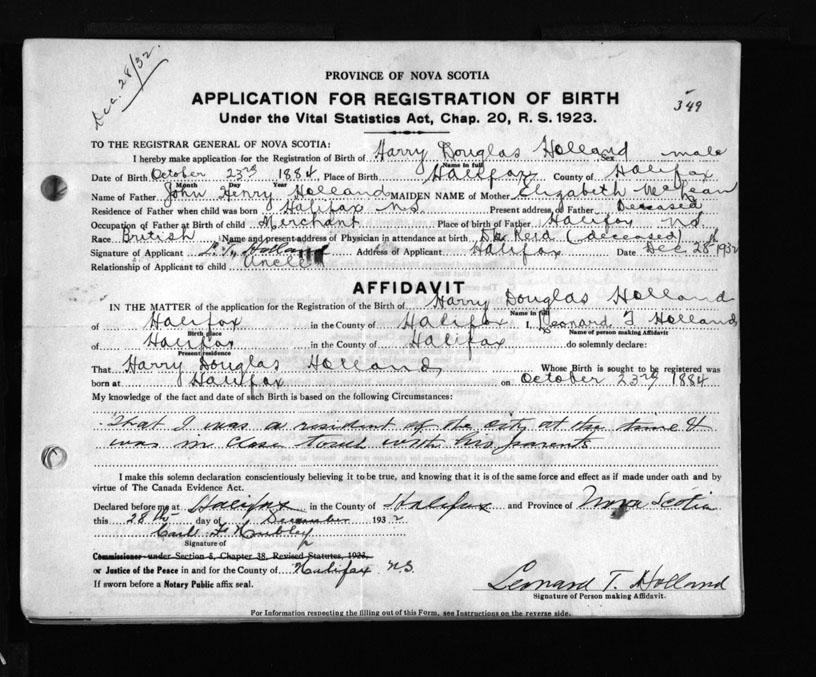 Dec. 28/32.
PROVINCE OF NOVA SCOTIA
APPLICATION FOR REGISTRATION OF BIRTH
349
Under the Vital Statistics Act, Chap. 20, R. S. 1923.
TO THE REGISTRAR GENERAL OF NOVA SCOTIA:
I hereby make application for the Registration of Birth of Harry Douglas Holland Sex male
Name in full
Date of Birth October 23rd 1884 Place of Birth Halifax County of Halifax
Month Day Year
Name of Father John Henry Holland MAIDEN NAME of Mother Elizabeth
Residence of Father when child was born Halifax N.S. Present address of Father Deceased
Occupation of Father at Birth of child Merchant Place of birth of Father Halifax NS
Race British Name and present address of Physician in attendance at birth Dr. Reid (deceased)
Signature of Applicant L. T. Holland Address of Applicant Halifax Date Dec 28th 1932
Relationship of Applicant to child Uncle
AFFIDAVIT
IN THE MATTER of the application for the Registration of the Birth of Harry Douglas Holland
Name in full
of Halifax in the County of Halifax I, Leonard T Holland
Birth place Name of person making Affidavit
of Halifax in the County of Halifax do solemnly declare:
Present residence
That Harry Douglas Holland Whose Birth is sought to be registered was
born at Halifax on October 23rd 1884
My knowledge of the fact and date of such Birth is based on the following Circumstances:
That I was a resident of the city at the time &
was in close touch with his parents
I make this solemn declaration conscientiously believing it to be true, and knowing that it is of the same force and effect as if made under oath and by
virtue of The Canada Evidence Act.
Declared before me at Halifax in the County of Halifax and Province of Nova Scotia
this 28th day of December 1932
Carl F
Signature of
Commissioner under Section 8, Chapter 38, Revised Statutes, 1923.
or Justice of the Peace in and for the County of Halifax N.S.
If sworn before a Notary Public affix seal.
Leonard T. Holland
Signature of Person making Affidavit.
For Information respecting the filling out of this Form, see Instructions on the reverse side.